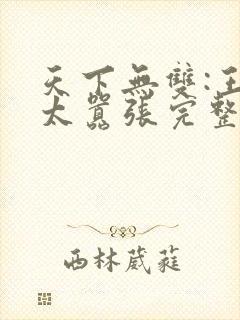 天下無雙:王
太囂張完整
西林葳蕤